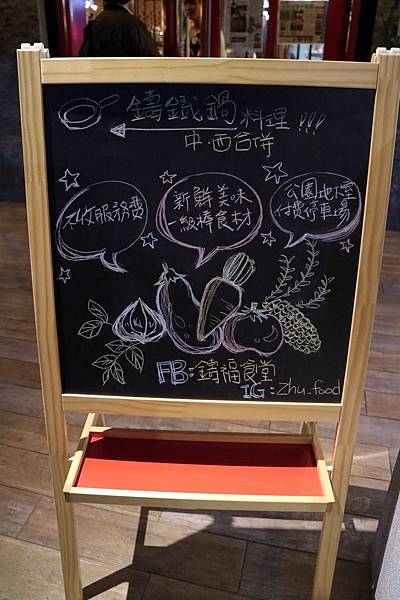 鑄鐵鍋料理!!!
中.西合併
不收服務費
新鮮美味
級棒食材
公園地下室
付費停車場
FB:鑄福食堂
IG:Zhu.food